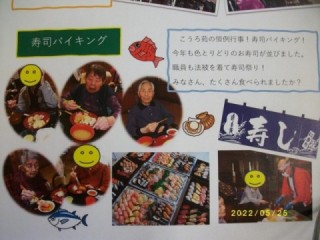 寿司バイキング
こうろ苑の恒例行事！寿司バイキング！
今年も色とりどりのお寿司が並びました。
職員も法被を着て寿司祭り！
みなさん、たくさん食べられましたか？
寿し
2022/05/25